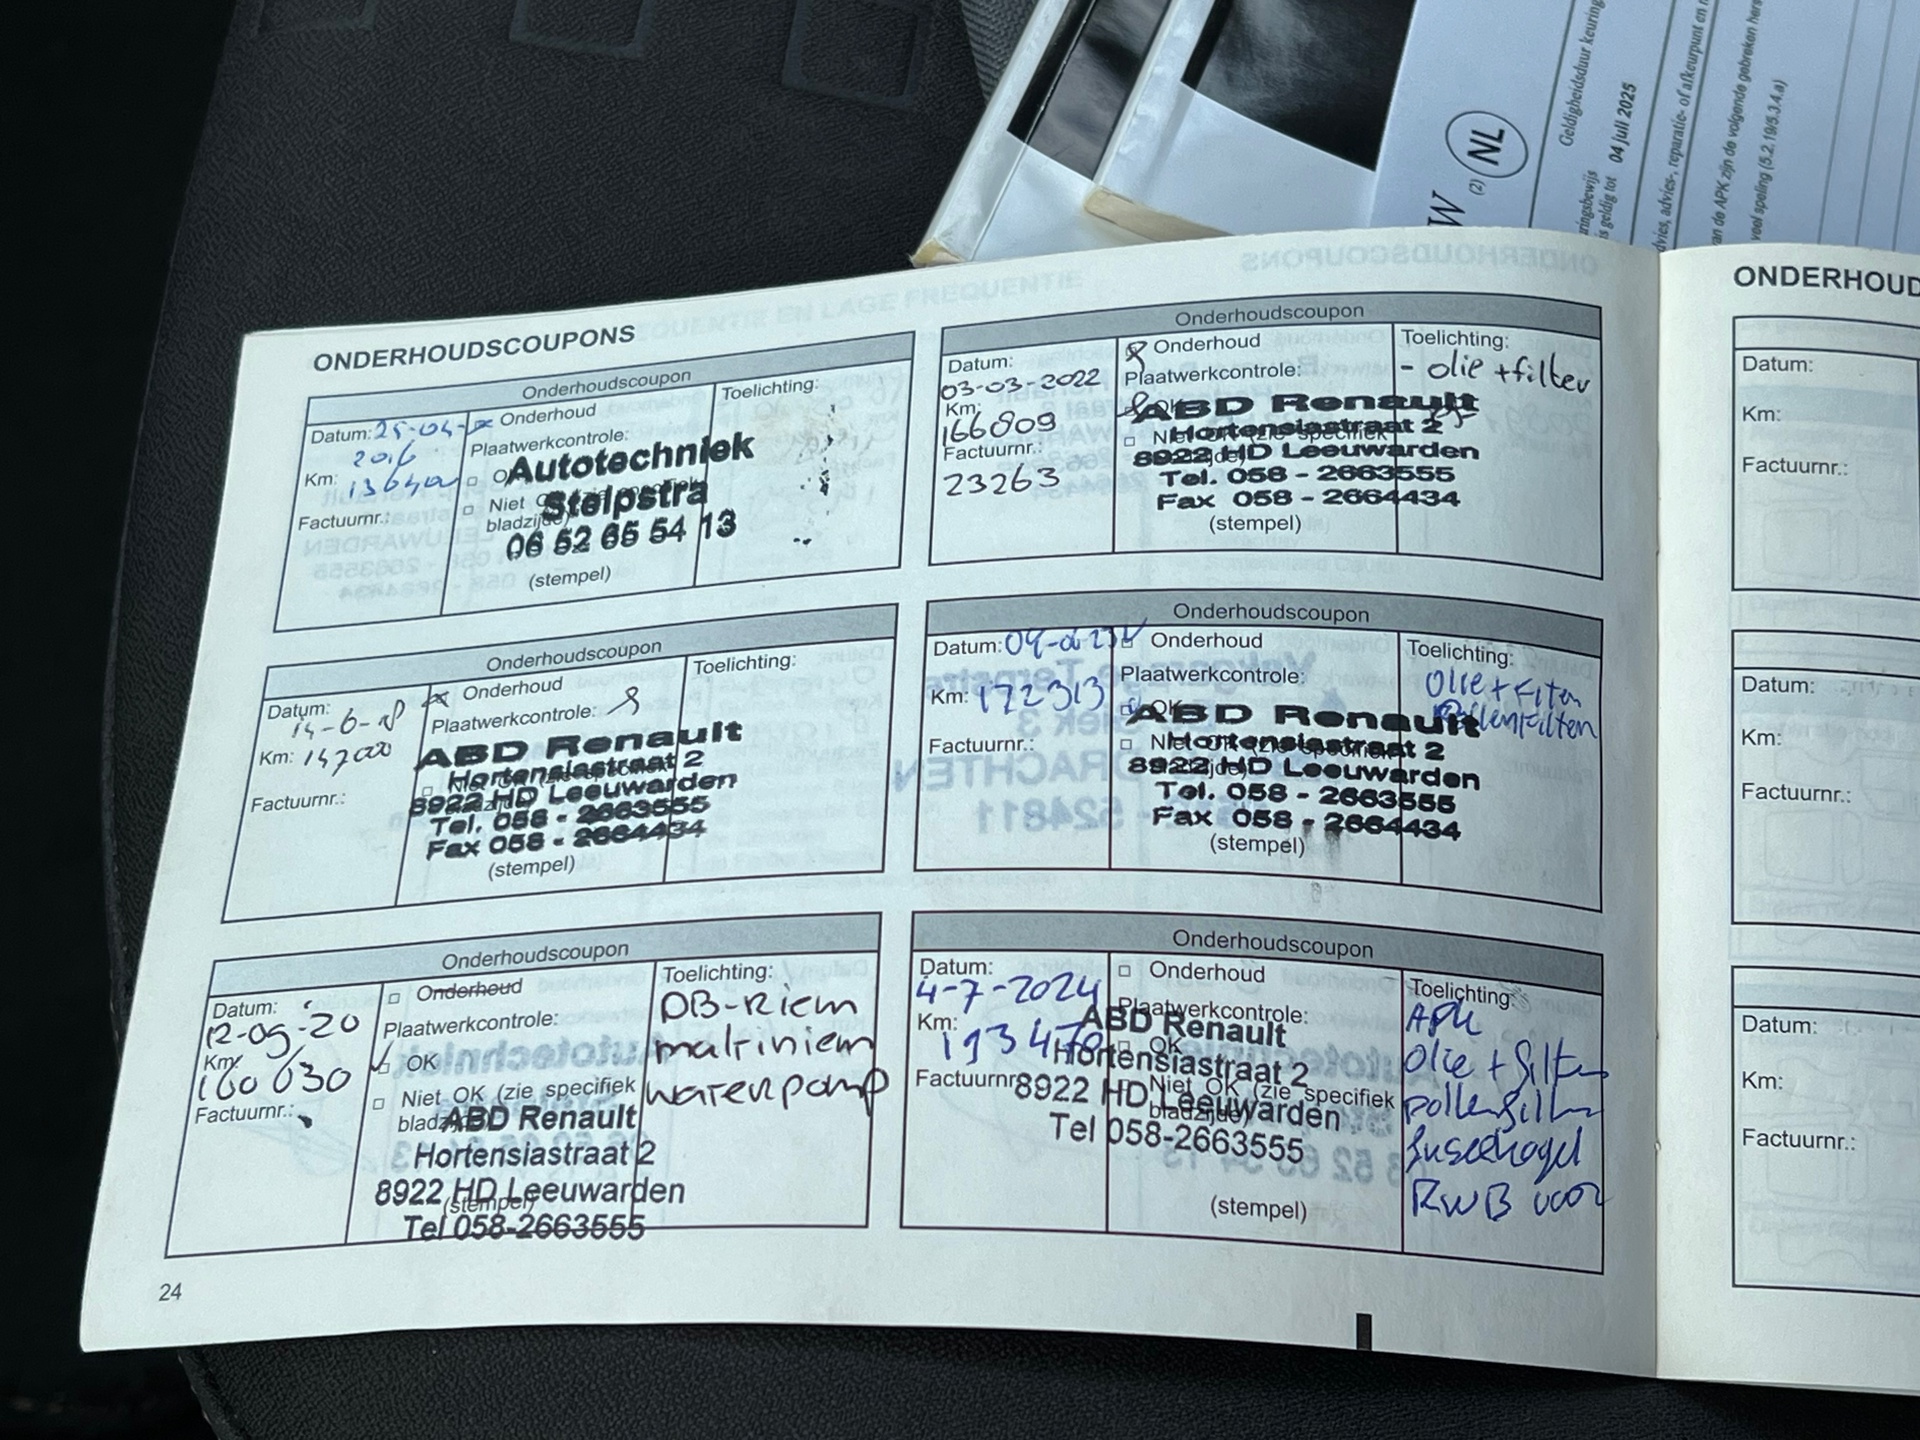 ONDERHOUDSCOUPONS
Onderhoudscoupon
Datum: 25-04-
2016
Km:
Factuurnr.:
Onderhoud
Plaatwerkcontrole:
Niet
bladzijde)
Autotechniek
Stelpstra
06 52 65 54 13
(stempel)
Toelichting:
Onderhoudscoupon
Datum:
14-6-18
Km: 147000
Factuurnr.:
Onderhoud
Plaatwerkcontrole:
ABD Renault
Hortensiastraat 2
8922 HD Leeuwarden
Tel. 058 - 2663555
Fax 058 - 2664434
(stempel)
Toelichting:
Onderhoudscoupon
Datum:
12-09-20
Km:
160 030
Factuurnr.:
Onderhoud
Plaatwerkcontrole:
OK
Niet OK (zie specifiek
bladzijde)
ABD Renault
Hortensiastraat 2
8922 HD Leeuwarden
(stempel)
Tel 058-2663555
Toelichting:
DB-riem
multiriem
waterpomp
24
Onderhoudscoupon
Datum:
03-03-2022
Km:
166809
Factuurnr.:
23263
Onderhoud
Plaatwerkcontrole:
ABD Renault
Hortensiastraat 2
8922 HD Leeuwarden
Tel. 058 - 2663555
Fax 058 - 2664434
(stempel)
Toelichting:
- olie + filter
Onderhoudscoupon
Datum:
Km: 172313
Factuurnr.:
Onderhoud
Plaatwerkcontrole:
OK
ABD Renault
Hortensiastraat 2
8922 HD Leeuwarden
Tel. 058 - 2663555
Fax 058 - 2664434
(stempel)
Toelichting:
Olie + Filter
Pollenfilter
Onderhoudscoupon
Datum:
4-7-2024
Km:
193470
Factuurnr.:
Onderhoud
Plaatwerkcontrole:
OK
Niet OK (zie specifiek
bladzijde)
ABD Renault
Hortensiastraat 2
8922 HD Leeuwarden
Tel 058-2663555
(stempel)
Toelichting:
APK
Olie + filter
pollenfilter
fuseekogel
RWB voor
ONDERHOUD
Datum:
Km:
Factuurnr.:
Datum:
Km:
Factuurnr.:
Datum:
Km:
Factuurnr.:
(2) NL
Geldigheidsduur keuring
is geldig tot 04 juli 2025
advies-, reparatie- of afkeurpunt en
van de APK zijn de volgende gebreken
veel speling (5.2.19/5.3.4.a)